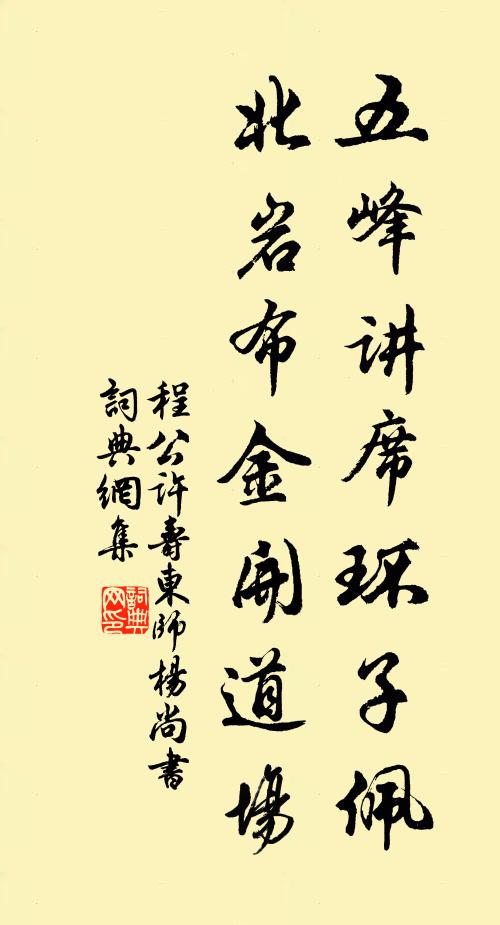 五峰讲席环子佩
北岩布金開道場
程公許壽東師楊尚書
詞典網集
詞典网印